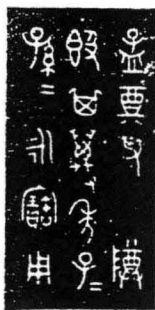 孟奠父尊
𣪘其萬年子=
孫=永寶用